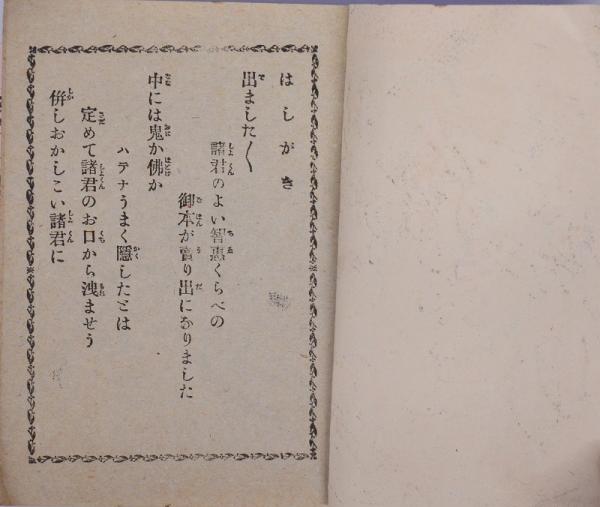 はしがき
出ました〳〵
諸君のよい智惠くらべの
御本が賣り出になりました
中には鬼か佛か
ハテナうまく隱したとは
定めて諸君のお口から洩ませう
併しおかしこい諸君に